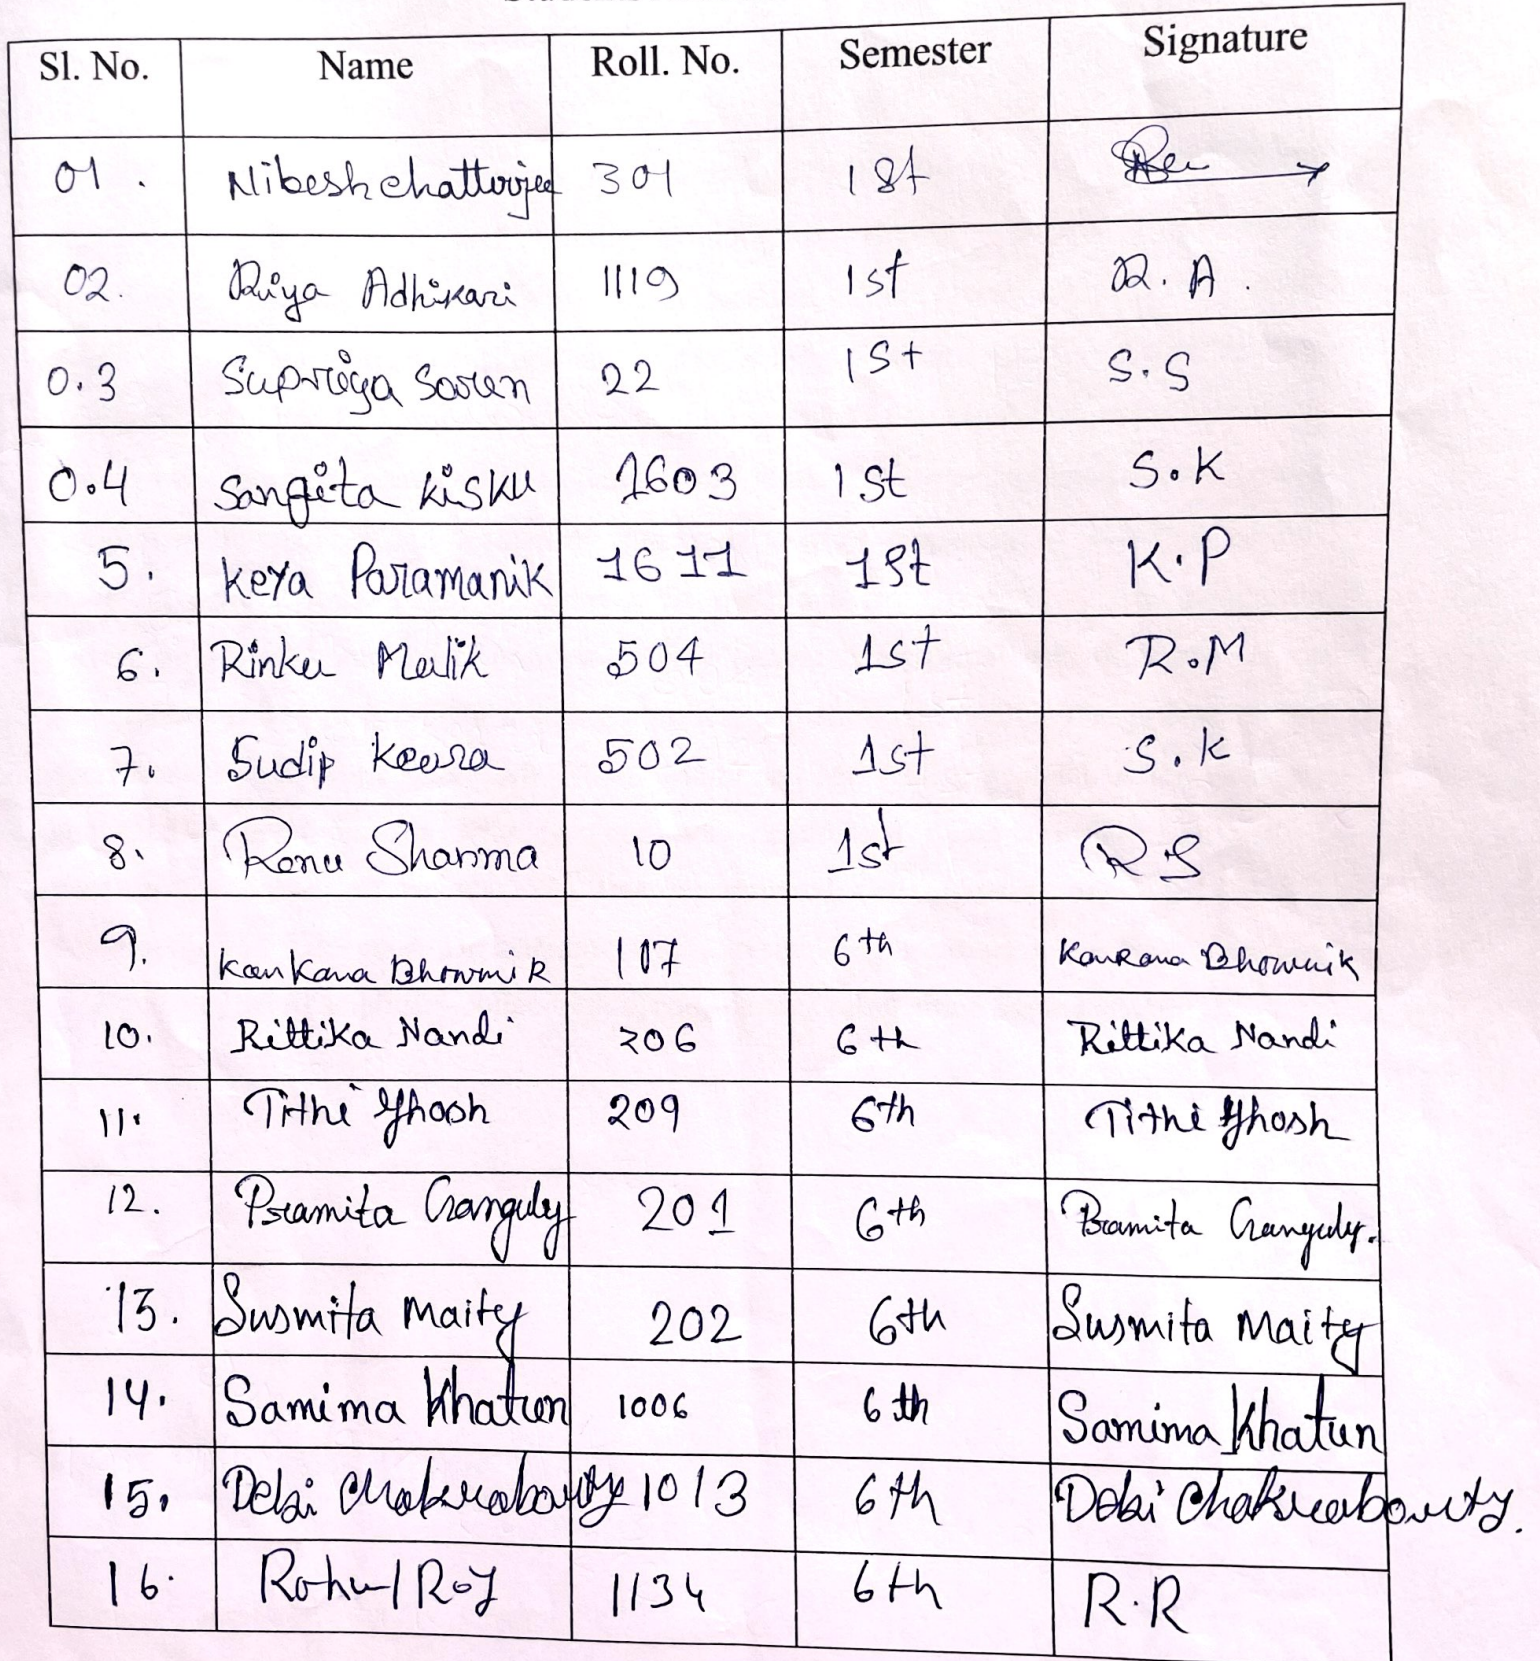 Sl. No. Name Roll. No. Semester Signature
01. Nibesh Chatterjee 301 1st
02. Riya Adhikari 1119 1st R. A.
0.3 Supriya Soren 22 1st S.S
0.4 Sangita Kisku 1603 1st S.K
5. Keya Paramanik 1611 1st K.P
6. Rinku Malik 504 1st R.M
7. Sudip Keora 502 1st S.K
8. Renu Sharma 10 1st R S
9. Kankana Bhowmik 107 6th Kankana Bhowmik
10. Rittika Nandi 206 6th Rittika Nandi
11. Tithi Ghosh 209 6th Tithi Ghosh
12. Pramita Ganguly 201 6th Pramita Ganguly.
13. Susmita Maity 202 6th Susmita Maity
14. Samima Khatun 1006 6th Samima Khatun
15. Debi Chakraborty 1013 6th Debi Chakraborty.
16. Rahul Roy 1134 6th R.R